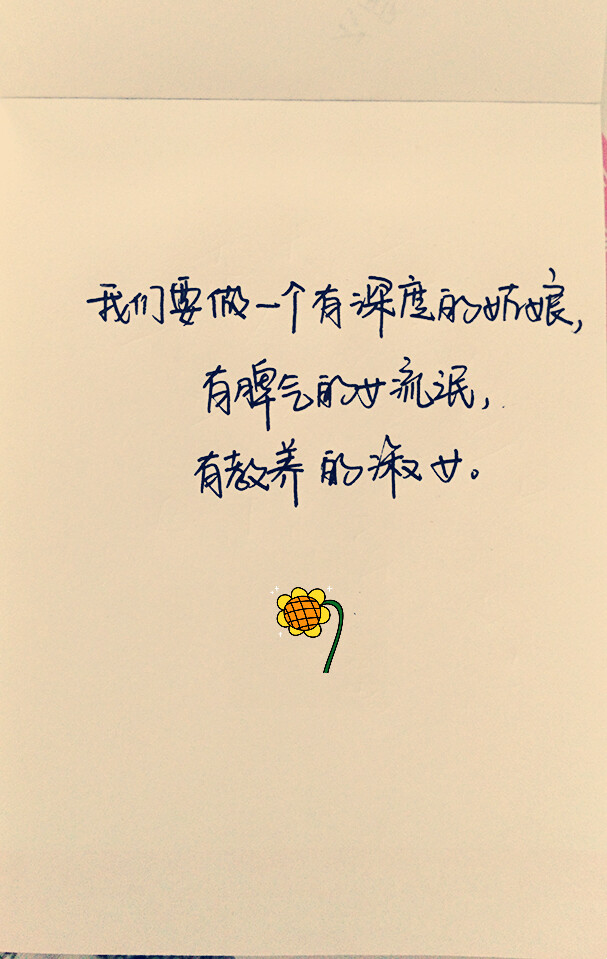 我们要做一个有深度的姑娘，
有脾气的女流氓，
有教养的淑女。